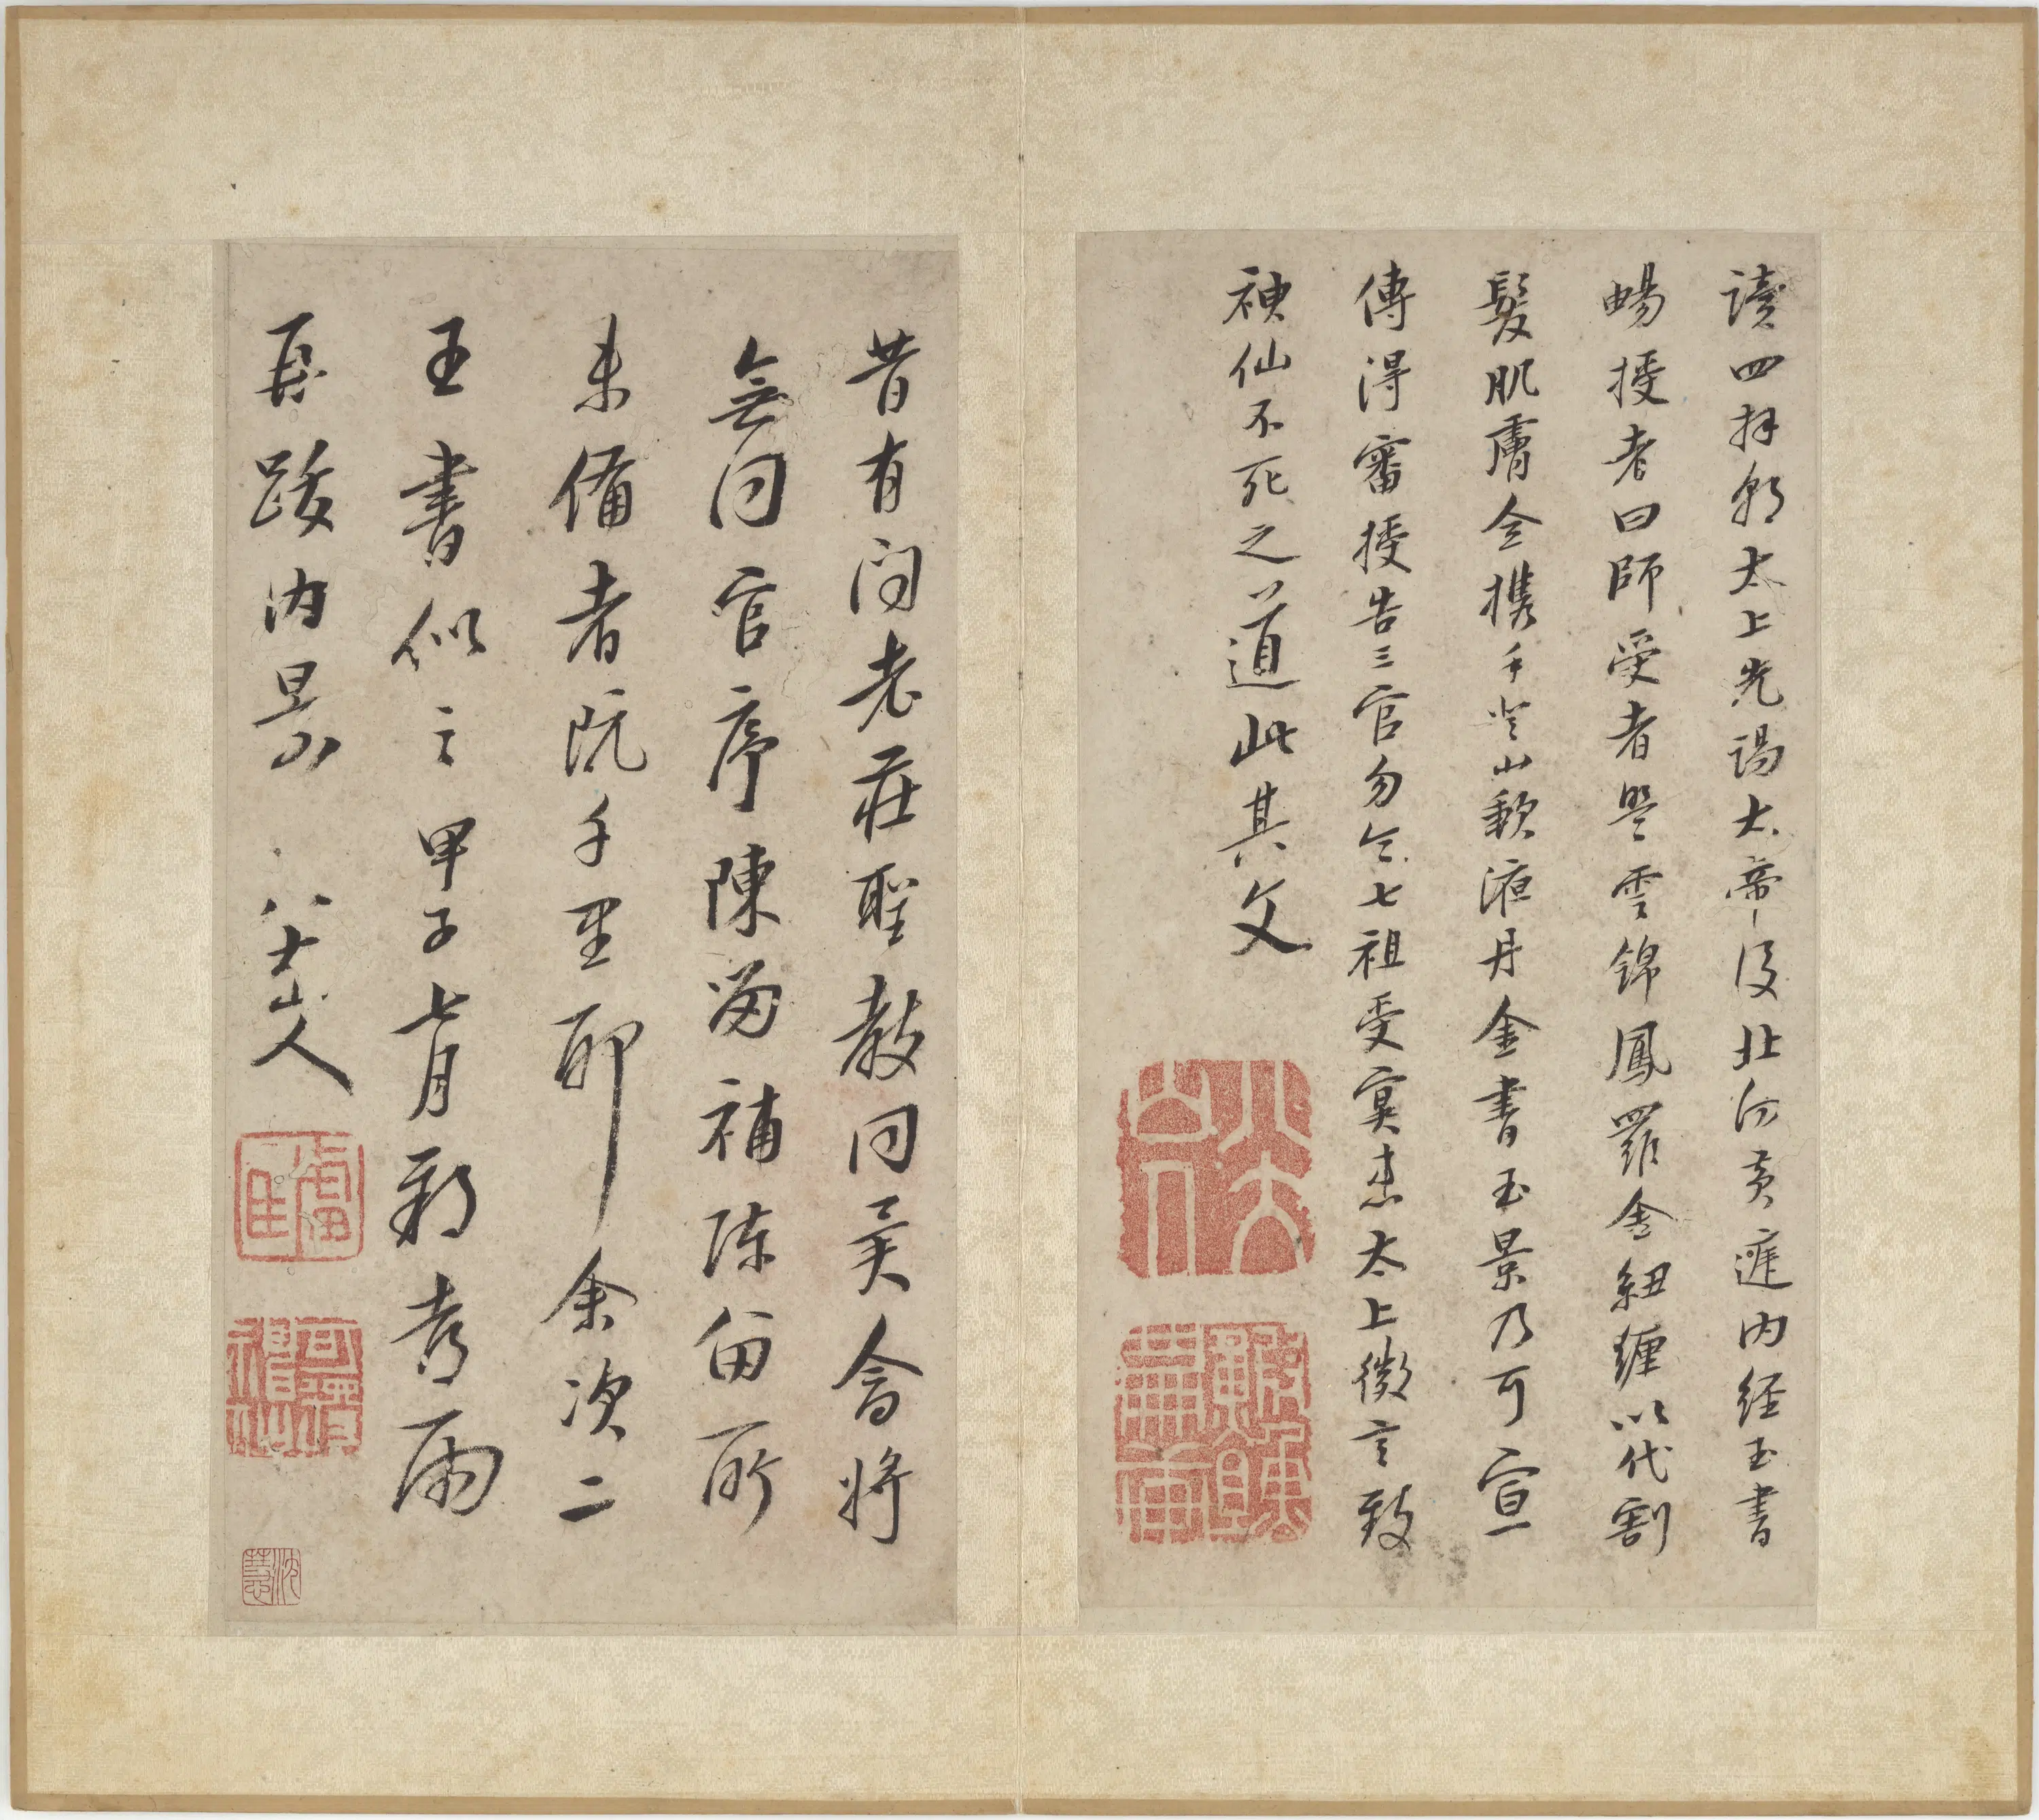 讀四拜朝太上先謁太帝後北向黃庭内経玉書
暢授者曰師受者盟雲錦鳳羅金紐纏以代割
髮肌膚全携手登山歃液丹金書玉景乃可宣
傳得審授告三官勿令七祖受冥患太上微言致
神仙不死之道此其文
八大山人
昔有问老莊聖教同異會將
無同官序陳留補陈留所
未備者阮千里耶余次二
王書似之甲子七月雨
再跋内景 八大山人